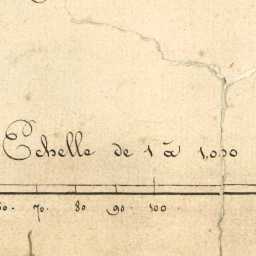 Echelle de 1 à 1,000
70. 80. 90. 100.